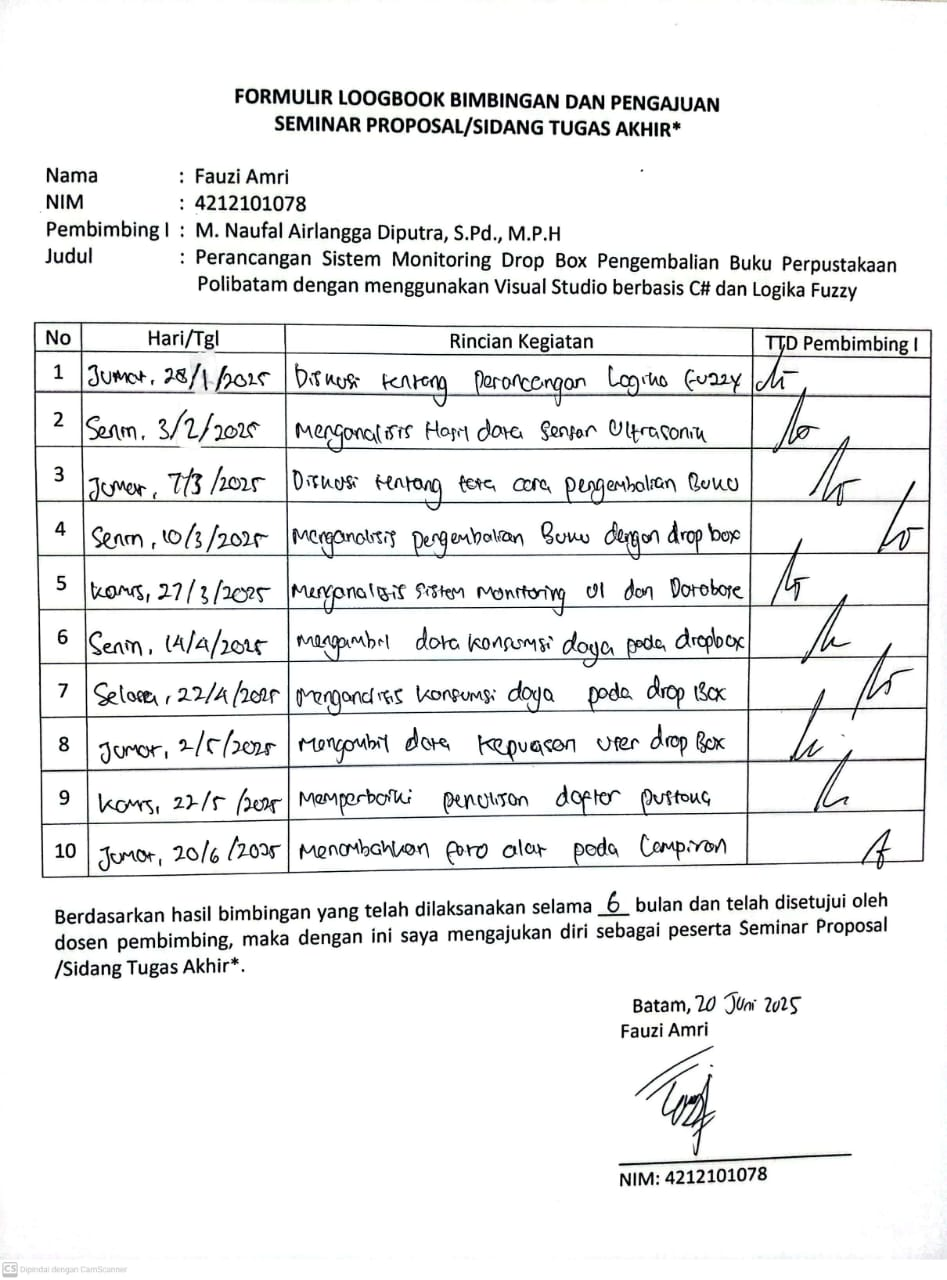 FORMULIR LOOGBOOK BIMBINGAN DAN PENGAJUAN
SEMINAR PROPOSAL/SIDANG TUGAS AKHIR*
Nama : Fauzi Amri
NIM : 4212101078
Pembimbing I : M. Naufal Airlangga Diputra, S.Pd., M.P.H
Judul : Perancangan Sistem Monitoring Drop Box Pengembalian Buku Perpustakaan
Polibatam dengan menggunakan Visual Studio berbasis C# dan Logika Fuzzy
No Hari/Tgl Rincian Kegiatan TTD Pembimbing I
1 Jumat, 28/1/2025 Diskusi tentang perancangan Logika Fuzzy
2 Senin, 3/2/2025 Menganalisis Hasil data Sensor Ultrasonik
3 Jumat, 7/3/2025 Diskusi tentang tata cara pengembalian Buku
4 Senin, 10/3/2025 Menganalisis pengembalian Buku dengan drop box
5 Kamis, 27/3/2025 Menganalisis Sistem Monitoring UI dan Database
6 Senin, 14/4/2025 Mengambil data konsumsi daya pada dropbox
7 Selasa, 22/4/2025 Menganalisis konsumsi daya pada drop Box
8 Jumat, 2/5/2025 Mengambil data kepuasan user drop Box
9 Kamis, 22/5/2025 Memperbaiki penulisan daftar pustaka
10 Jumat, 20/6/2025 Menambahkan foto alat pada Lampiran
Berdasarkan hasil bimbingan yang telah dilaksanakan selama 6 bulan dan telah disetujui oleh
dosen pembimbing, maka dengan ini saya mengajukan diri sebagai peserta Seminar Proposal
/Sidang Tugas Akhir*.
Batam, 20 Juni 2025
Fauzi Amri
NIM: 4212101078
CS Dipindai dengan CamScanner